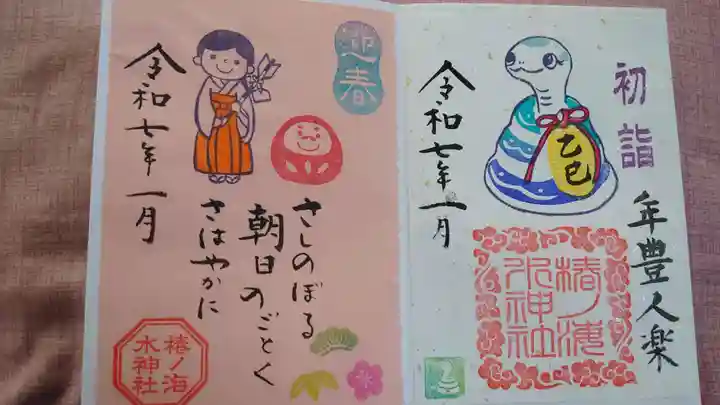 初詣
年豊人楽
乙巳
令和七年一月
椿ノ海
水神社
迎春
令和七年一月
さしのぼる
朝日のごとく
さはやかに
椿ノ海
水神社